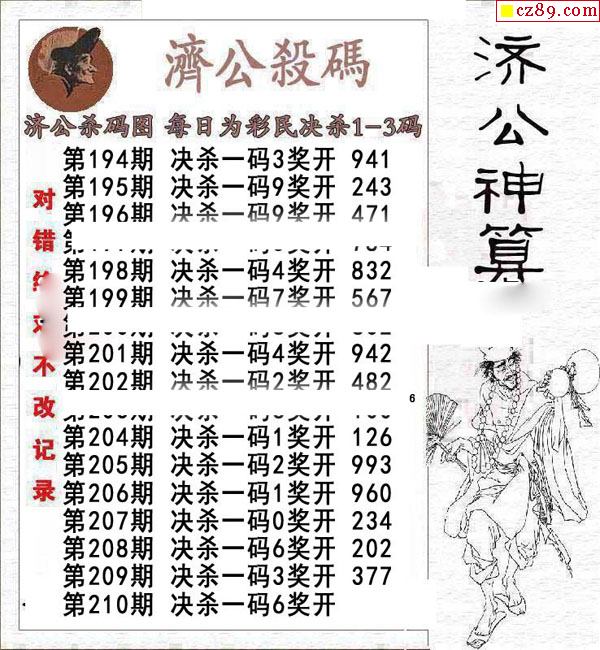 cz89.com
濟公殺碼
济公杀码图 每日为彩民决杀1-3码
第194期 决杀一码3奖开 941
第195期 决杀一码9奖开 243
第196期 决杀一码9奖开 471
第198期 决杀一码4奖开 832
第199期 决杀一码7奖开 567
第201期 决杀一码4奖开 942
第202期 决杀一码2奖开 482
6
第204期 决杀一码1奖开 126
第205期 决杀一码2奖开 993
第206期 决杀一码1奖开 960
第207期 决杀一码0奖开 234
第208期 决杀一码6奖开 202
第209期 决杀一码3奖开 377
第210期 决杀一码6奖开
对错 不改记录
济公神算